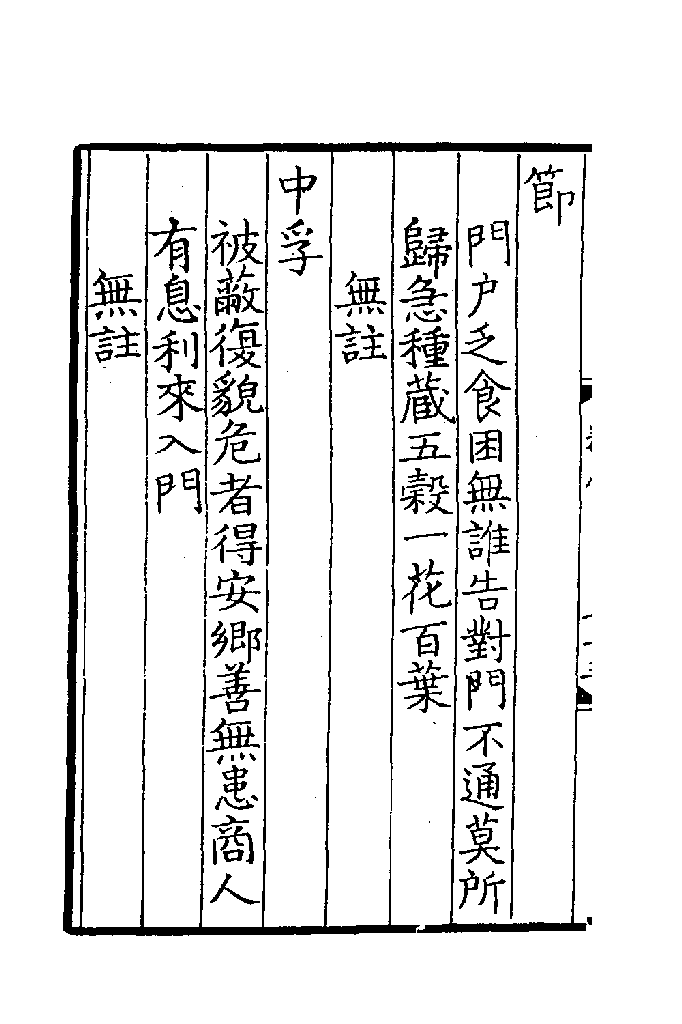 節
門户乏食困無誰告對門不通莫所
歸急種蔵五榖一花百葉
無註
中孚
被蔽復貌危者得安鄉善無患商人
有息利來入門
無註